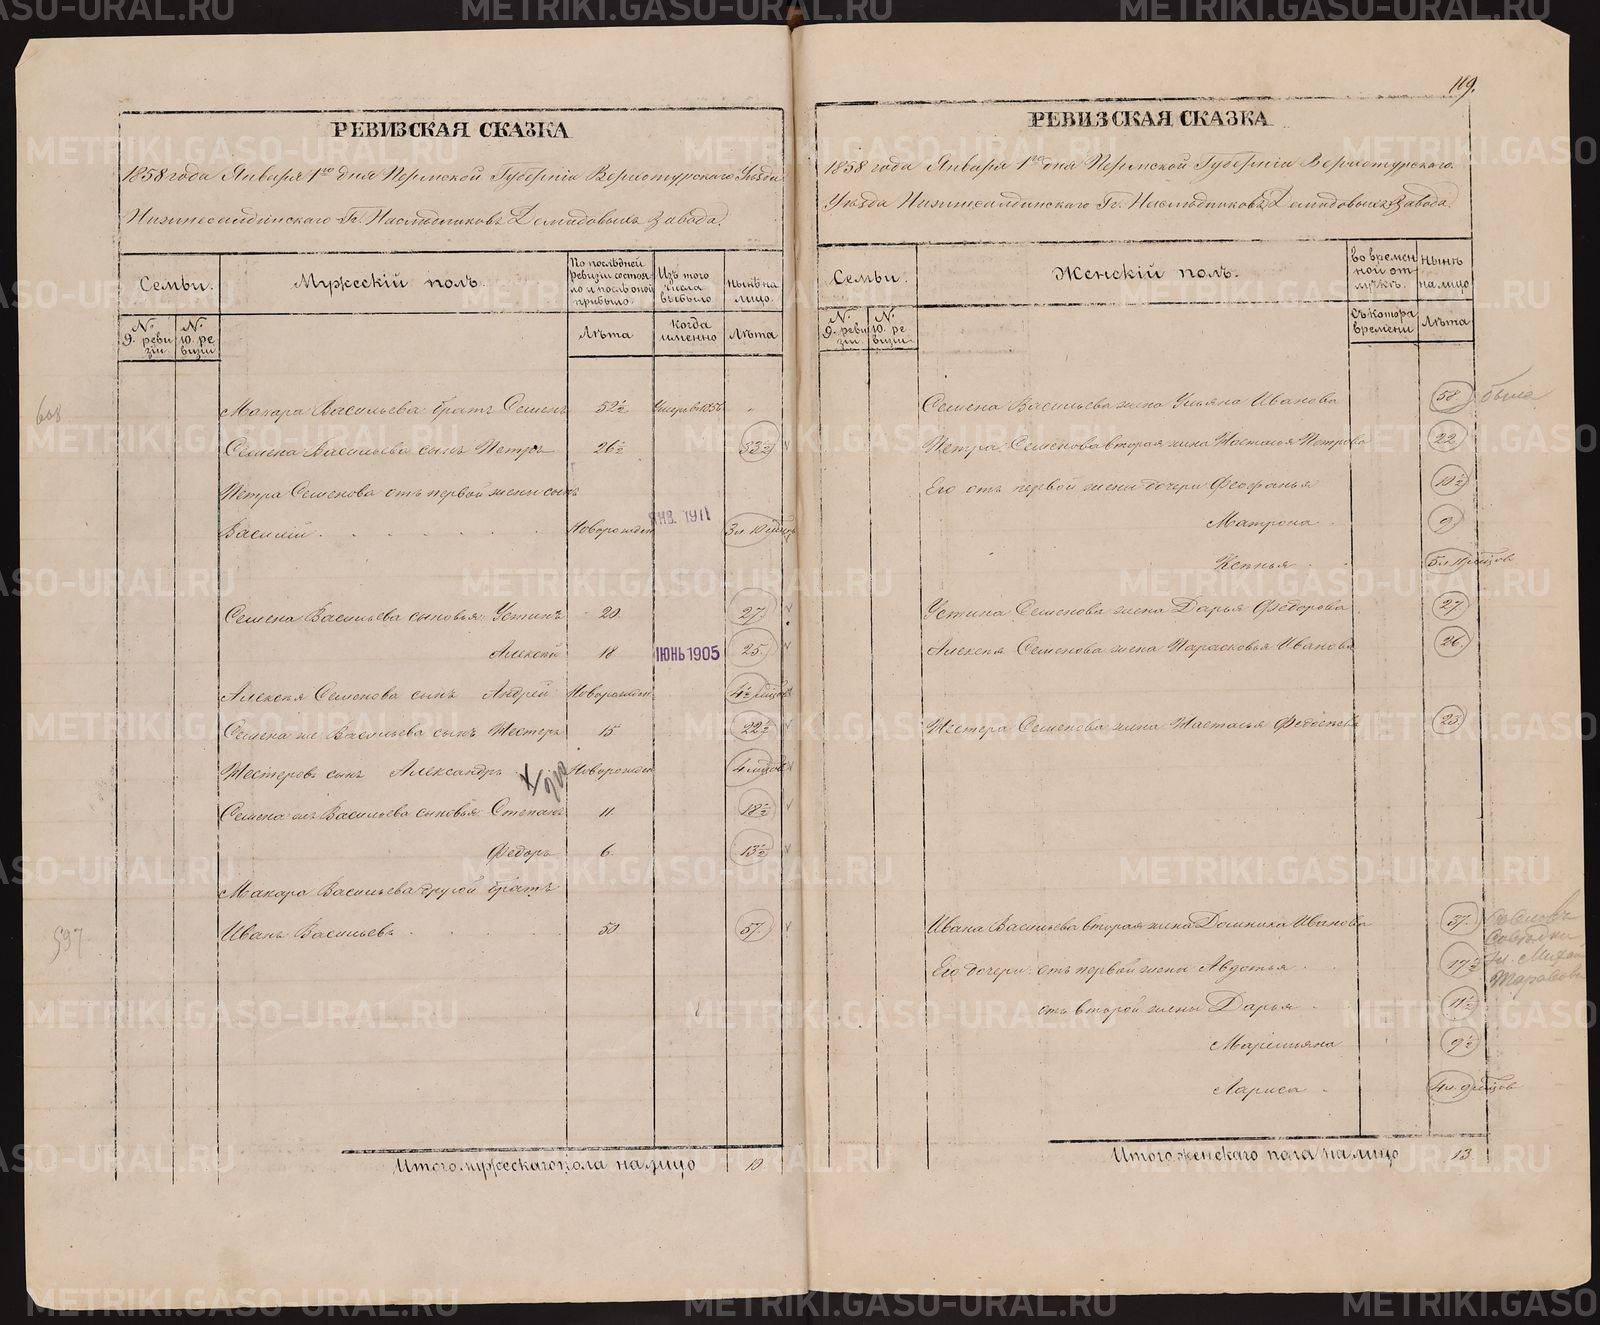 169.
РЕВИЗСКАЯ СКАЗКА
1858 года Января 1го дня Пермской Губерніи Верхотурскаго Уѣзда
Нижнесалдинскаго Гг. Наслѣдниковъ Демидовыхъ завода.
Семьи.
Мужескій полъ.
По послѣдней ревизіи состояло и послѣ оной прибыло.
Изъ того числа выбыло
Нынѣ на лицо.
№ 9. ревизіи
№ 10. ревизіи
Лѣта
Когда именно
Лѣта
608
Макара Васильева братъ Семенъ 52½ Умеръ в 1856 "
Семена Васильева сынъ Петръ 26½ 33½
Петра Семенова отъ первой жены сынъ
Василій Новорожден ЯНВ. 1911 3 л. 10 мцовъ
Семена Васильева сыновья: Устинъ 20. 27.
Алексѣй 18 ІЮНЬ 1905 25
Алексѣя Семенова сынъ Андрей Новорожден 4½ мцовъ
Семена же Васильева сынъ Нестеръ 15 22½
Нестеровъ сынъ Александръ Новорожден 4 мцовъ
Семена жъ Васильева сыновья: Степанъ 11 18½
Федоръ 6. 13½
Макара Васильева другой братъ
597
Иванъ Васильевъ 50 57
Итого мужескаго пола на лицо 10
РЕВИЗСКАЯ СКАЗКА
1858 года Января 1го дня Пермской Губерніи Верхотурскаго
Уѣзда Нижнесалдинскаго Гг. Наслѣдниковъ Демидовыхъ Завода.
Семьи.
Женскій полъ.
во временной отлучкѣ.
Нынѣ на лицо
№ 9. ревизіи
№ 10. ревизіи
Съ котора времени
Лѣта
Семена Васильева жена Ульяна Иванова 58
Петра Семенова вторая жена Настасья Петрова 22
Его отъ первой жены дочери Феофанья 10½
Матрона 9
Ксенья 5 л. мцов
Устина Семенова жена Дарья Федорова 27
Алексѣя Семенова жена Парасковья Иванова 26.
Нестера Семенова жена Настасья Федосѣева 23
Ивана Васильева вторая жена Домника Иванова 37.
Его дочери: отъ первой жены Авдотья 17½
отъ второй жены Дарья 11½
Маріmiяна 9½
Лариса 4 л. 9 мцов
Итого женскаго пола на лицо 13
METRIKI.GASO-URAL.RU